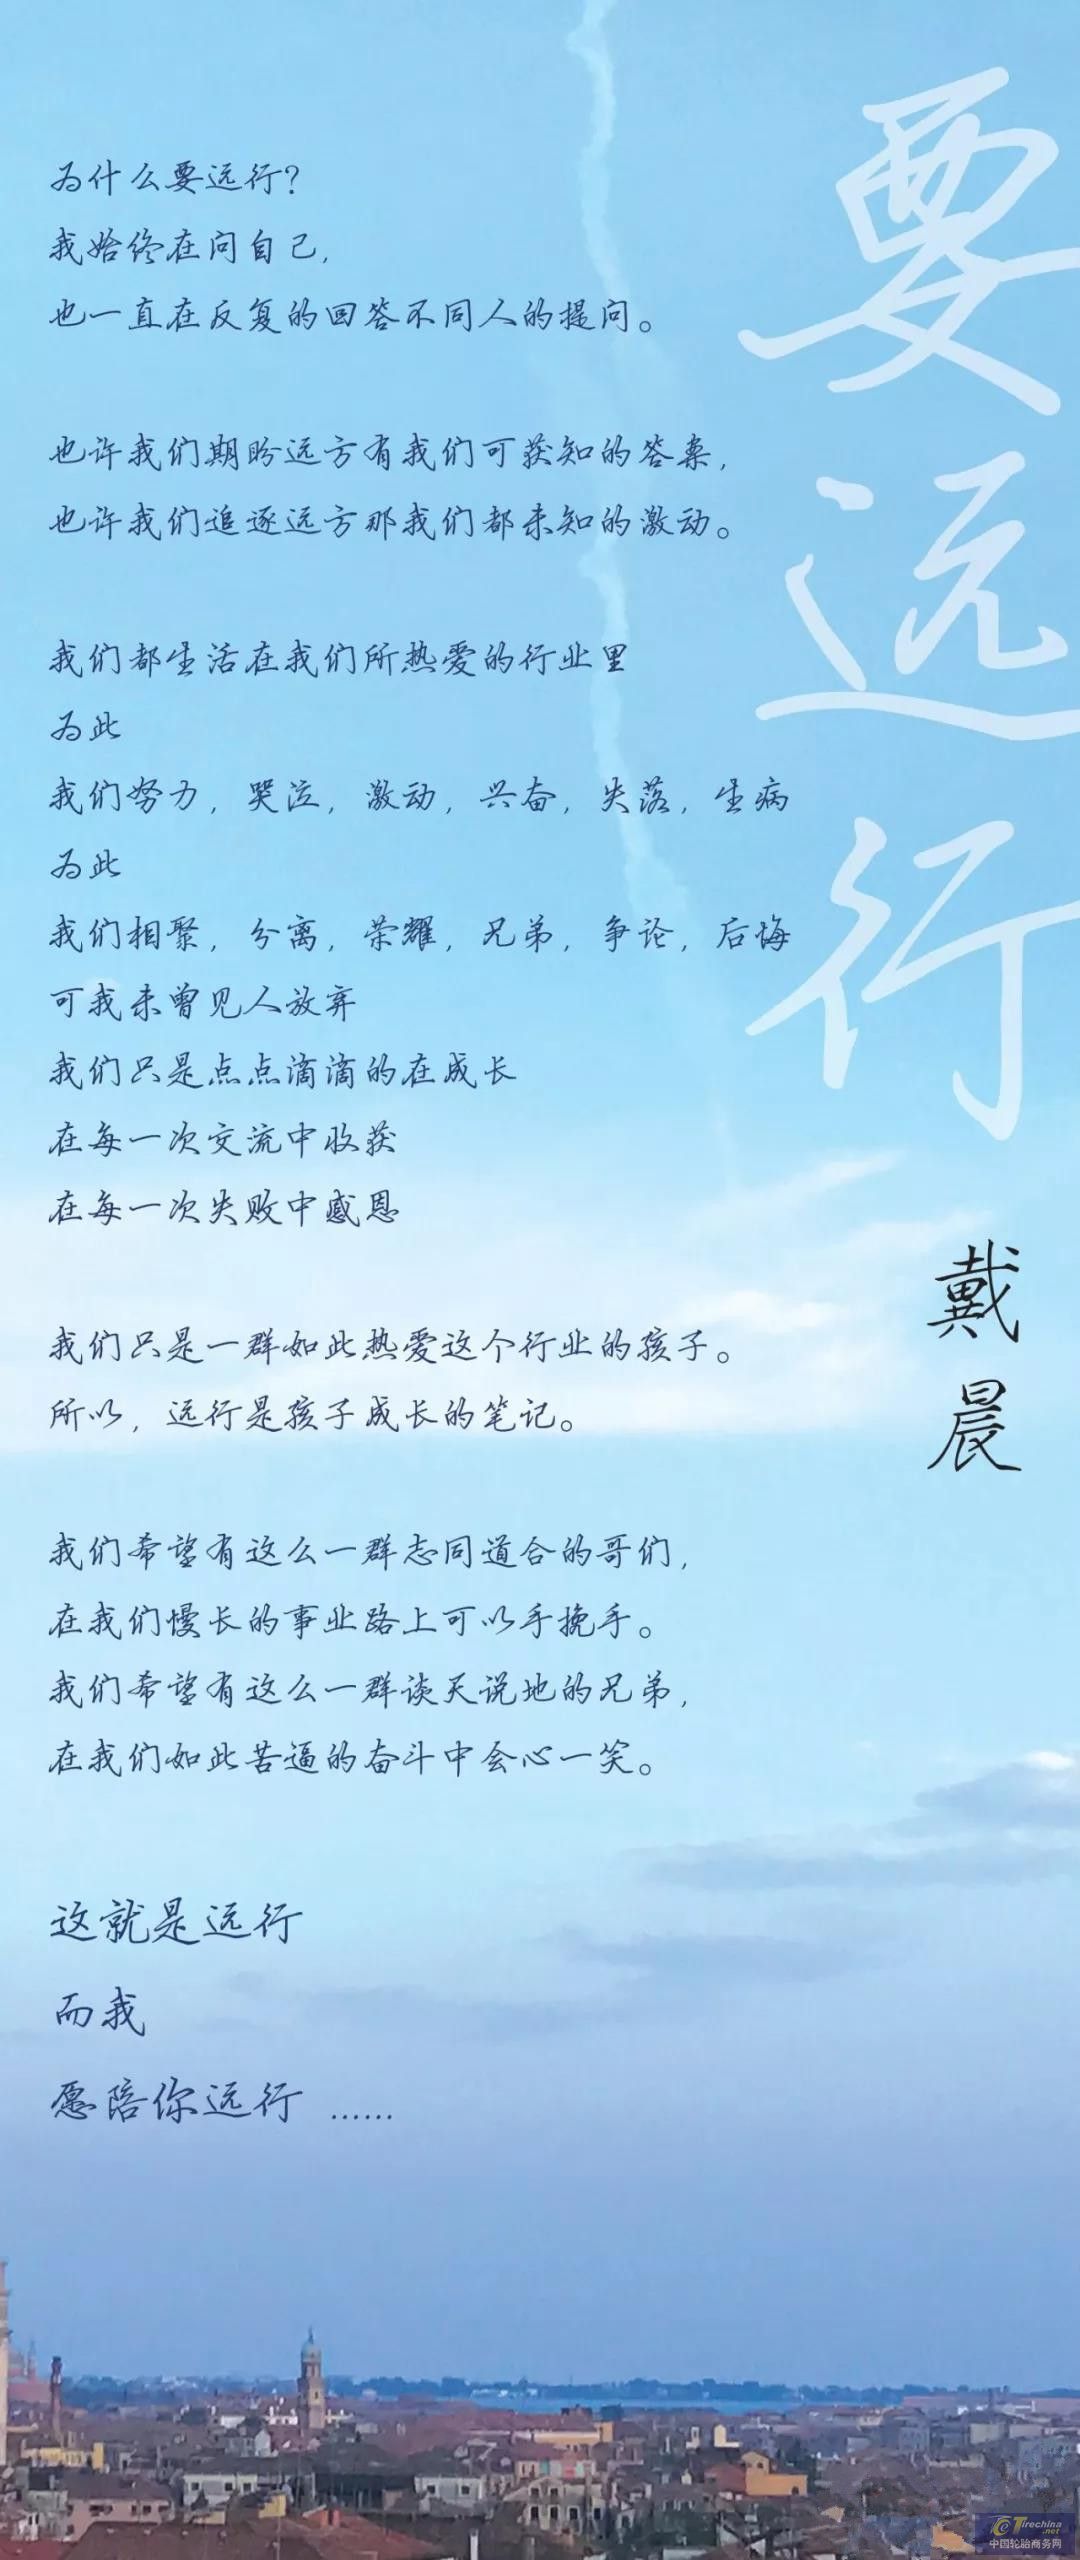 要远行
戴晨
为什么要远行？
我始终在问自己，
也一直在反复的回答不同人的提问。
也许我们期盼远方有我们可获知的答案，
也许我们追逐远方那我们都未知的激动。
我们都生活在我们所热爱的行业里
为此
我们努力，哭泣，激动，兴奋，失落，生病
为此
我们相聚，分离，荣耀，兄弟，争论，后悔
可我未曾见人放弃
我们只是点点滴滴的在成长
在每一次交流中收获
在每一次失败中感恩
我们只是一群如此热爱这个行业的孩子。
所以，远行是孩子成长的笔记。
我们希望有这么一群志同道合的哥们，
在我们慢长的事业路上可以手挽手。
我们希望有这么一群谈天说地的兄弟，
在我们如此苦逼的奋斗中会心一笑。
这就是远行
而我
愿陪你远行 ……
Tirechina.net
中国轮胎商务网